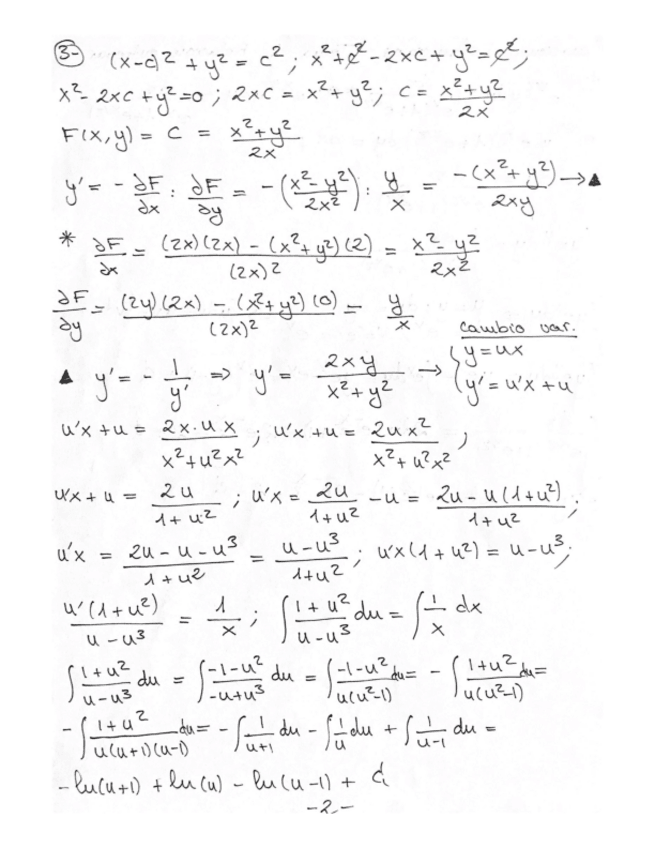 3- (x-c)² + y² = c² ; x² + c² - 2xc + y² = c² ;
x² - 2xc + y² = 0 ; 2xc = x² + y² ; c = (x² + y²)/(2x)
F(x,y) = C = (x² + y²)/(2x)
y' = - ∂F/∂x : ∂F/∂y = - ((x² - y²)/(2x²)) : y/x = -(x² + y²)/(2xy) → ▲
* ∂F/∂x = ((2x)(2x) - (x² + y²)(2))/(2x)² = (x² - y²)/(2x²)
∂F/∂y = ((2y)(2x) - (x² + y²)(0))/(2x)² = y/x
cambio var.
▲ y' = - 1/y' ⇒ y' = 2xy/(x² + y²) → { y = ux
y' = u'x + u
u'x + u = (2x·ux)/(x² + u²x²) ; u'x + u = (2ux²)/(x² + u²x²) ;
u'x + u = 2u/(1 + u²) ; u'x = 2u/(1 + u²) - u = (2u - u(1 + u²))/(1 + u²) ;
u'x = (2u - u - u³)/(1 + u²) = (u - u³)/(1 + u²) ; u'x(1 + u²) = u - u³ ;
u'(1 + u²)/(u - u³) = 1/x ; ∫ (1 + u²)/(u - u³) du = ∫ 1/x dx
∫ (1 + u²)/(u - u³) du = ∫ (-1 - u²)/(-u + u³) du = ∫ (-1 - u²)/(u(u² - 1)) du = - ∫ (1 + u²)/(u(u² - 1)) du =
- ∫ (1 + u²)/(u(u + 1)(u - 1)) du = - ∫ 1/(u + 1) du - ∫ 1/u du + ∫ 1/(u - 1) du =
- ln(u + 1) + ln(u) - ln(u - 1) + C
-2-